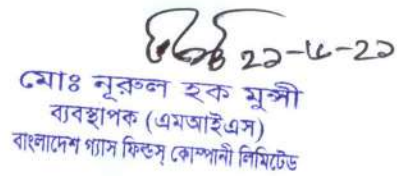 ২১-৬-২১
মোঃ নূরুল হক মুন্সী
ব্যবস্থাপক (এমআইএস)
বাংলাদেশ গ্যাস ফিল্ডস্ কোম্পানী লিমিটেড